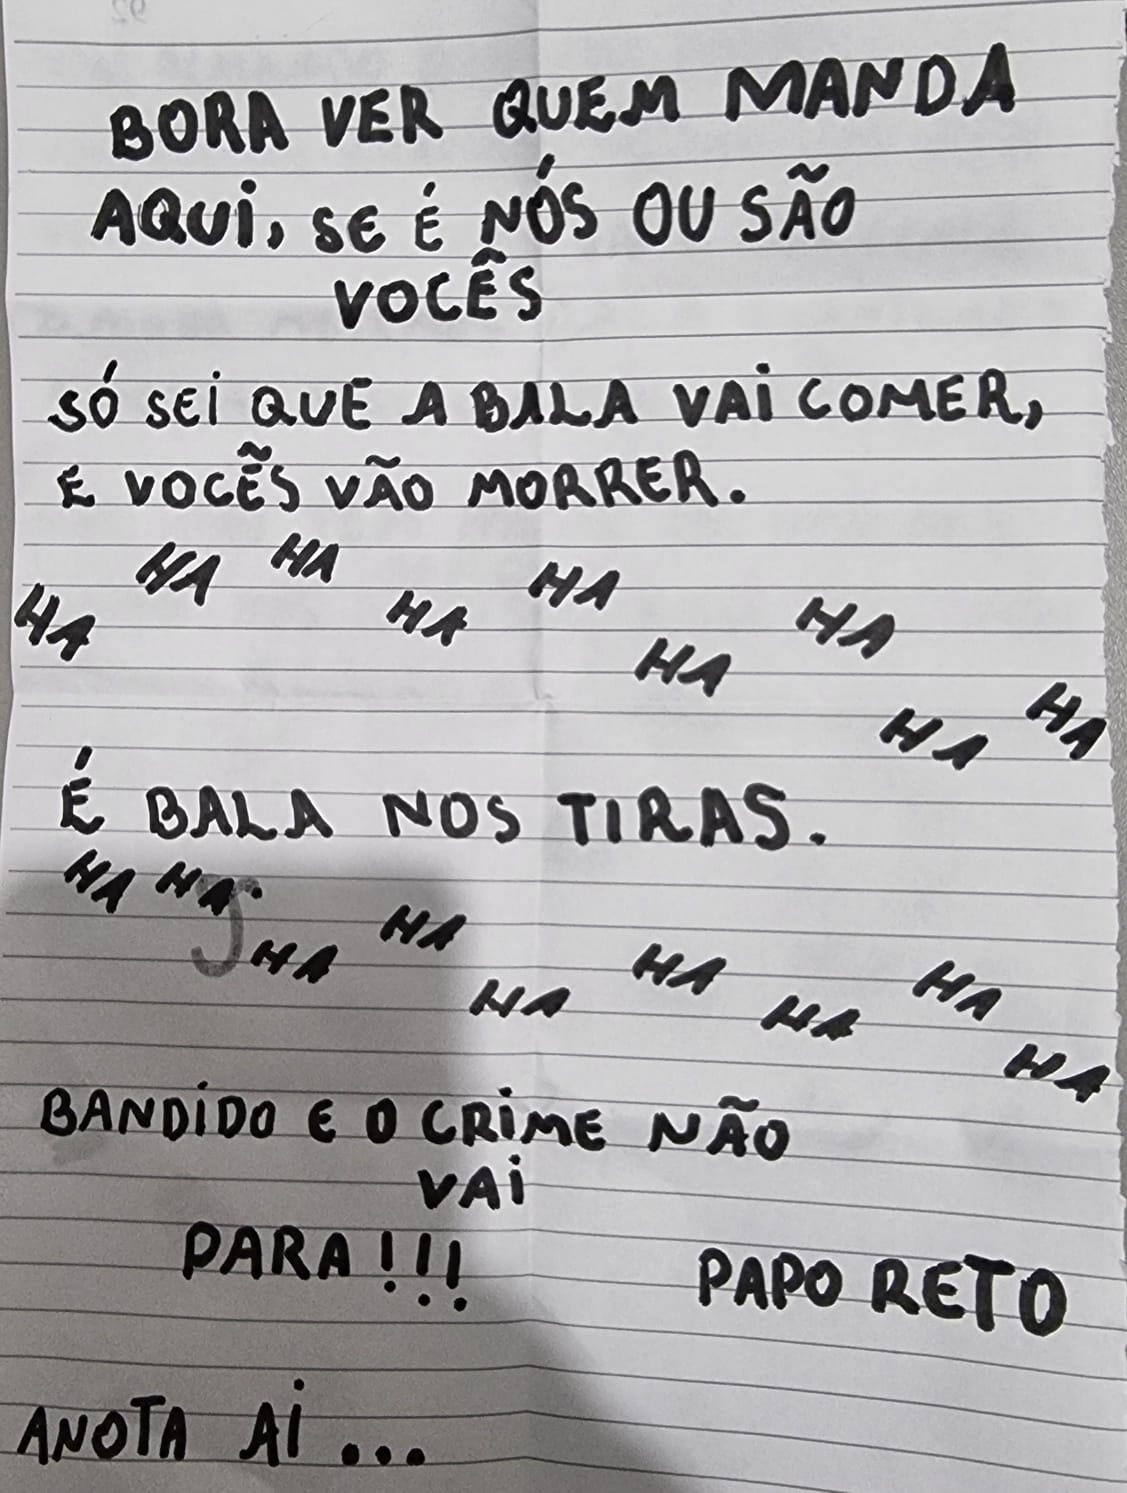 BORA VER QUEM MANDA
AQUi, SE É NÓS OU SÃO
VOCÊS
SÓ SEi QUE A BALA VAi COMER,
E VOCẼS VÃO MORRER.
HA HA HA HA HA HA HA HA HA
É BALA NOS TIRAS.
HA HA. HA HA HA HA HA HA HA
BANDiDO E O CRiME NÃO
VAi
PARA!!! PAPO RETO
ANOTA Ai...